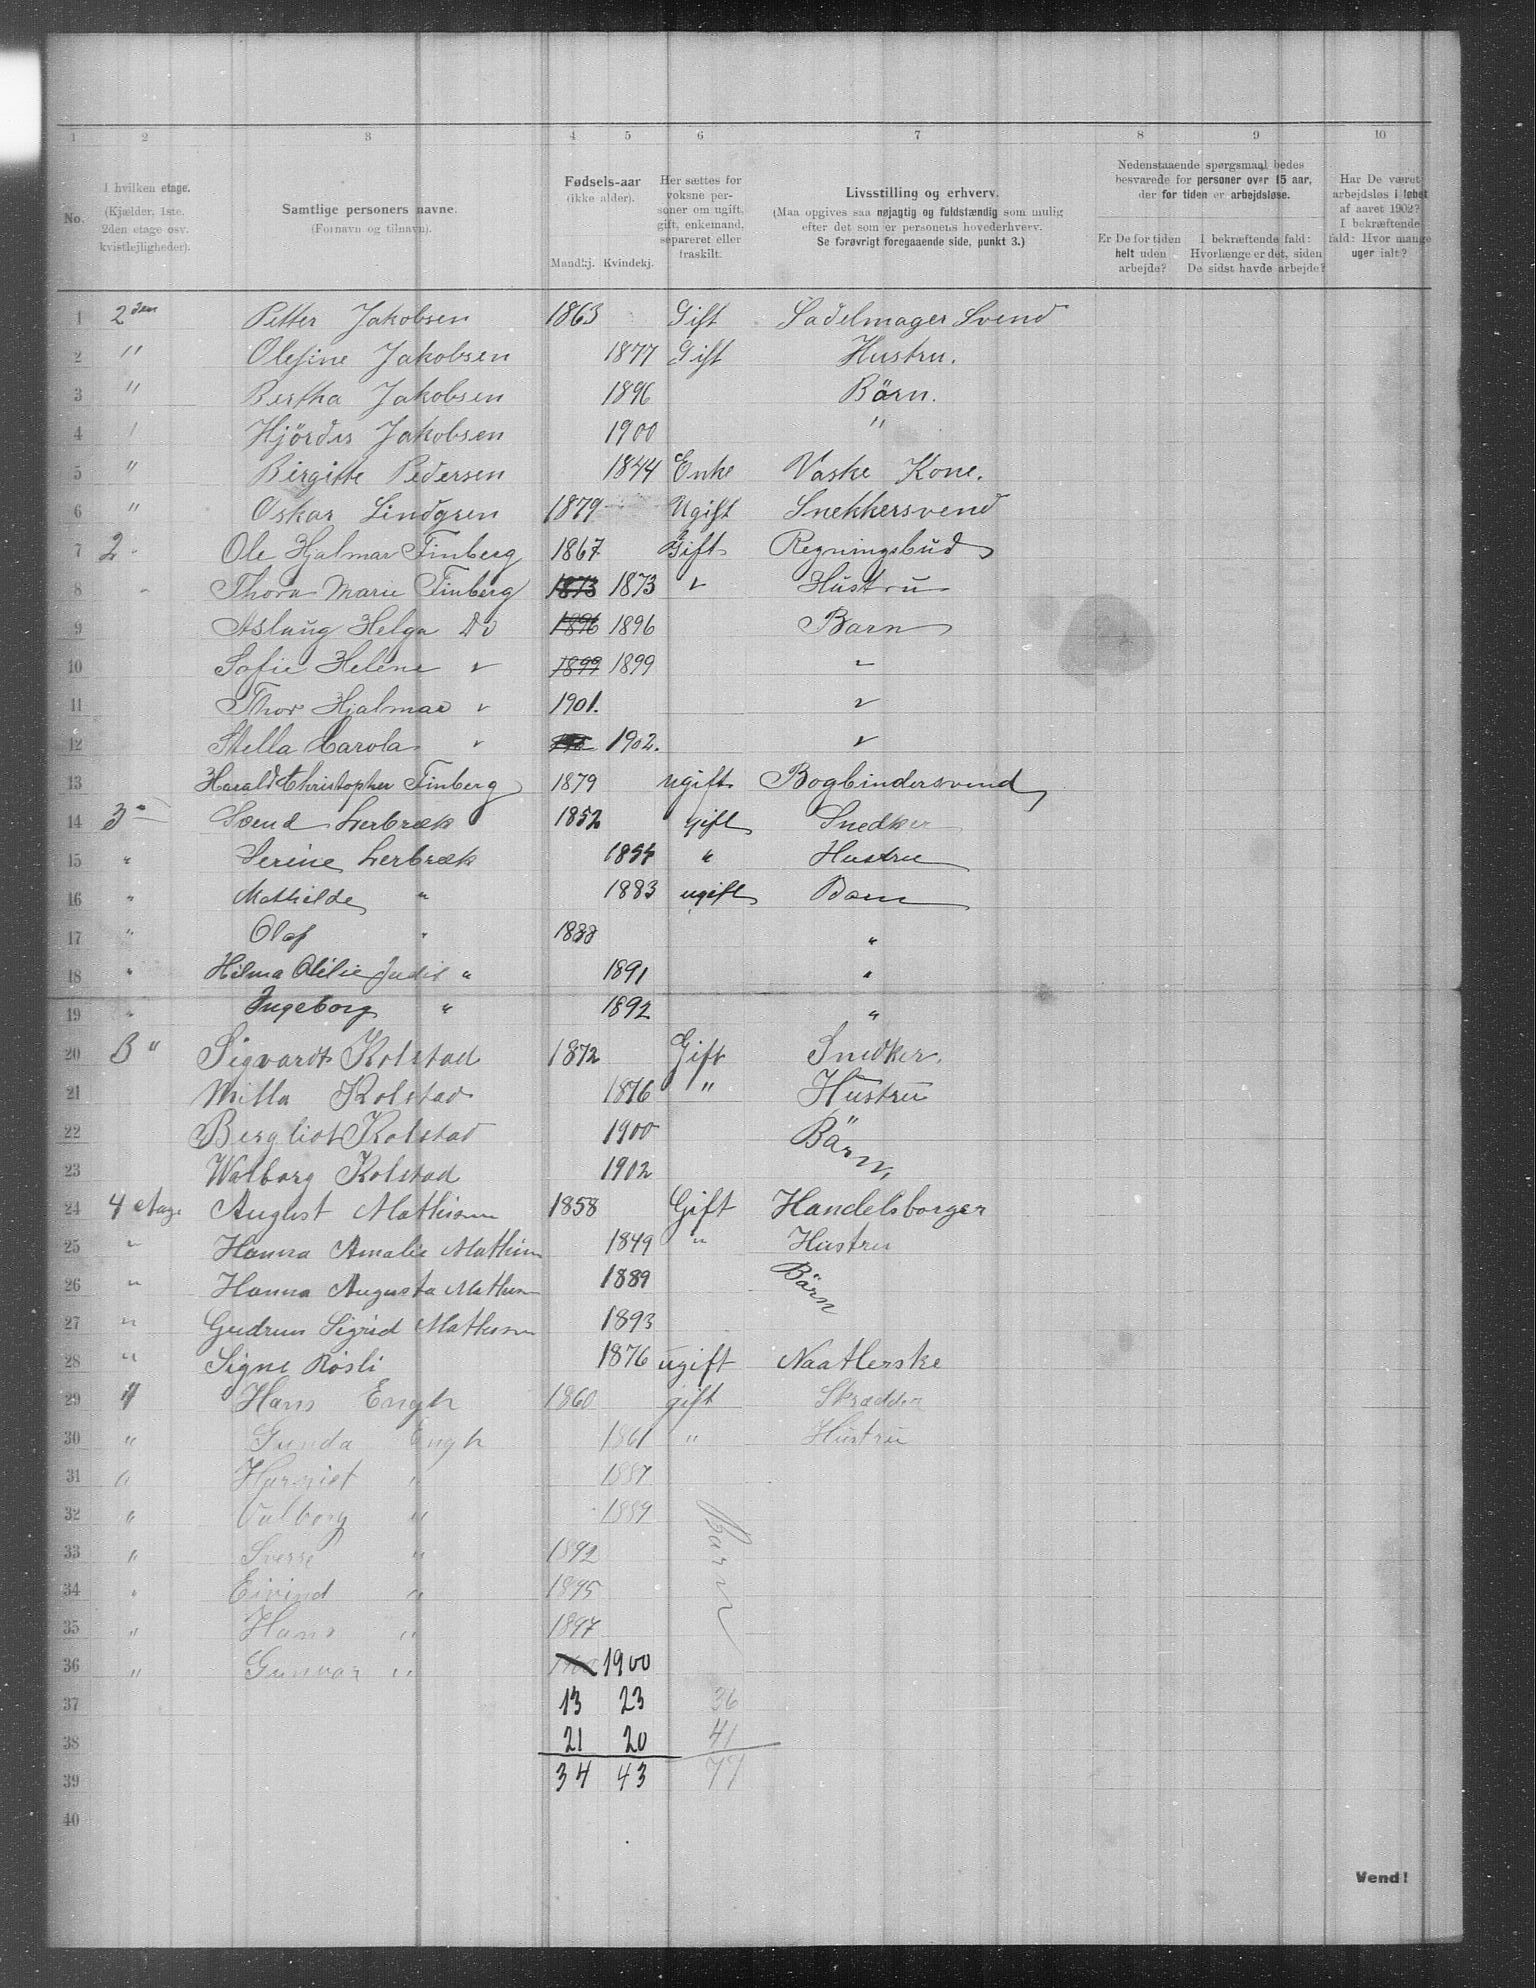 1 2 3 4 5 6 7 8 9 10
No.
I hvilken etage.
(Kjælder, 1ste, 2den etage osv. kvistlejligheder).
Samtlige personers navne.
(Fornavn og tilnavn).
Fødsels-aar
(ikke alder).
Mandkj. Kvindekj.
Her sættes for voksne personer om ugift, gift, enkemand, separeret eller fraskilt.
Livsstilling og erhverv.
(Maa opgives saa nøjagtig og fuldstændig som mulig efter det som er personens hovederhverv.
Se forøvrigt foregaaende side, punkt 3.)
Nedenstaaende spørgsmaal bedes besvarede for personer over 15 aar, der for tiden er arbejdsløse.
Er De for tiden helt uden arbejde?
I bekræftende fald: Hvorlænge er det, siden De sidst havde arbejde?
Har De været arbejdsløs i løbet af aaret 1902? I bekræftende fald: Hvor mange uger ialt?
1 2den Petter Jakobsen 1863 Gift Sadelmager Svend
2 " Olefine Jakobsen 1877 Gift Hustru.
3 " Bertha Jakobsen 1896 Börn.
4 " Hjördis Jakobsen 1900 "
5 " Birgitte Pedersen 1844 Enke Vaske Kone.
6 " Oskar Lindgren 1879 Ugift Snekkersvend
7 2 " Ole Hjalmar Finberg 1867 Gift Regningsbud
8 " Thora Marie Finberg 1873 1873 " Hustru
9 Aslaug Helga Do 1896 1896 Barn
10 Sofie Helene " 1899 1899 "
11 Thor Hjalmar " 1901. "
12 Stella Carola " 1902. "
13 Harald Christopher Finberg 1879 ugift Bogbindersvend
14 3 Svend Lerbræk 1852 gift Snedker
15 " Serine Lerbræk 1854 " Hustru
16 " Mathilde " 1883 ugift Barn
17 " Olaf " 1888 "
18 " Hilma Otilie Judit " 1891 "
19 " Ingeborg " 1892 "
20 3 " Sigvardt Kolstad 1872 Gift Snedker.
21 Milla Kolstad 1876 " Hustru
22 Bergliot Kolstad 1900 Bärn,
23 Walborg Kolstad 1902
24 4 etage August Mathisen 1858 Gift Handelsborger
25 " Hanna Amalie Mathisen 1849 " Hustru
26 " Hanna Augusta Mathisen 1889 Bärn
27 " Gudrun Sigrid Mathisen 1893
28 " Signe Røsli 1876 ugift Naatlerske
29 4 Hans Engh 1860 gift Skrædder
30 " Gunda Engh 1861 " Hustru
31 " Harriet " 1887
32 " Valborg " 1889 Barn
33 " Sverre " 1892
34 " Eivind " 1895
35 " Hans " 1897
36 " Gunvar " 1900 1900
37 13 23 36
38 21 20 41
39 34 43 77
40
Vend!